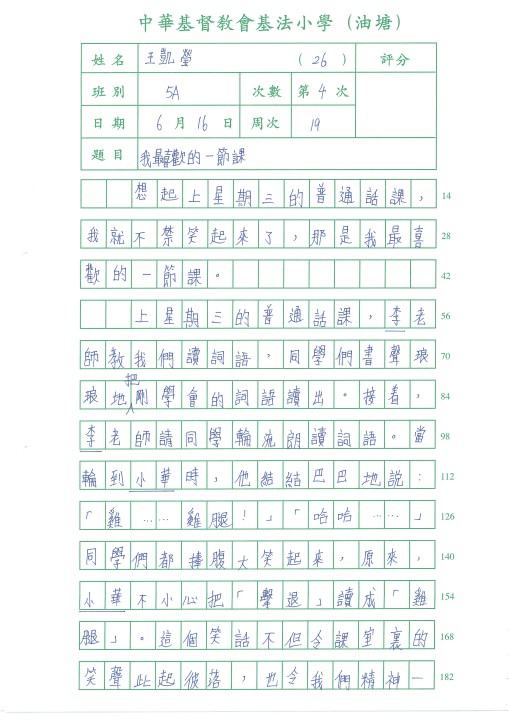 中華基督教會基法小學（油塘）
姓名 王凱瑩 （26） 評分
班別 5A 次數 第4次
日期 6月16日 周次 19
題目 我最喜歡的一節課
想起上星期三的普通話課， 14
我就不禁笑起來了，那是我最喜 28
歡的一節課。 42
上星期三的普通話課，李老 56
師教我們讀詞語，同學們書聲琅 70
琅地把剛學會的詞語讀出。接着， 84
李老師請同學輪流朗讀詞語。當 98
輪到小華時，他結結巴巴地說： 112
「雞……雞腿！」「哈哈……」 126
同學們都捧腹大笑起來，原來， 140
小華不小心把「擊退」讀成「雞 154
腿」。這個笑話不但令課室裏的 168
笑聲此起彼落，也令我們精神一 182